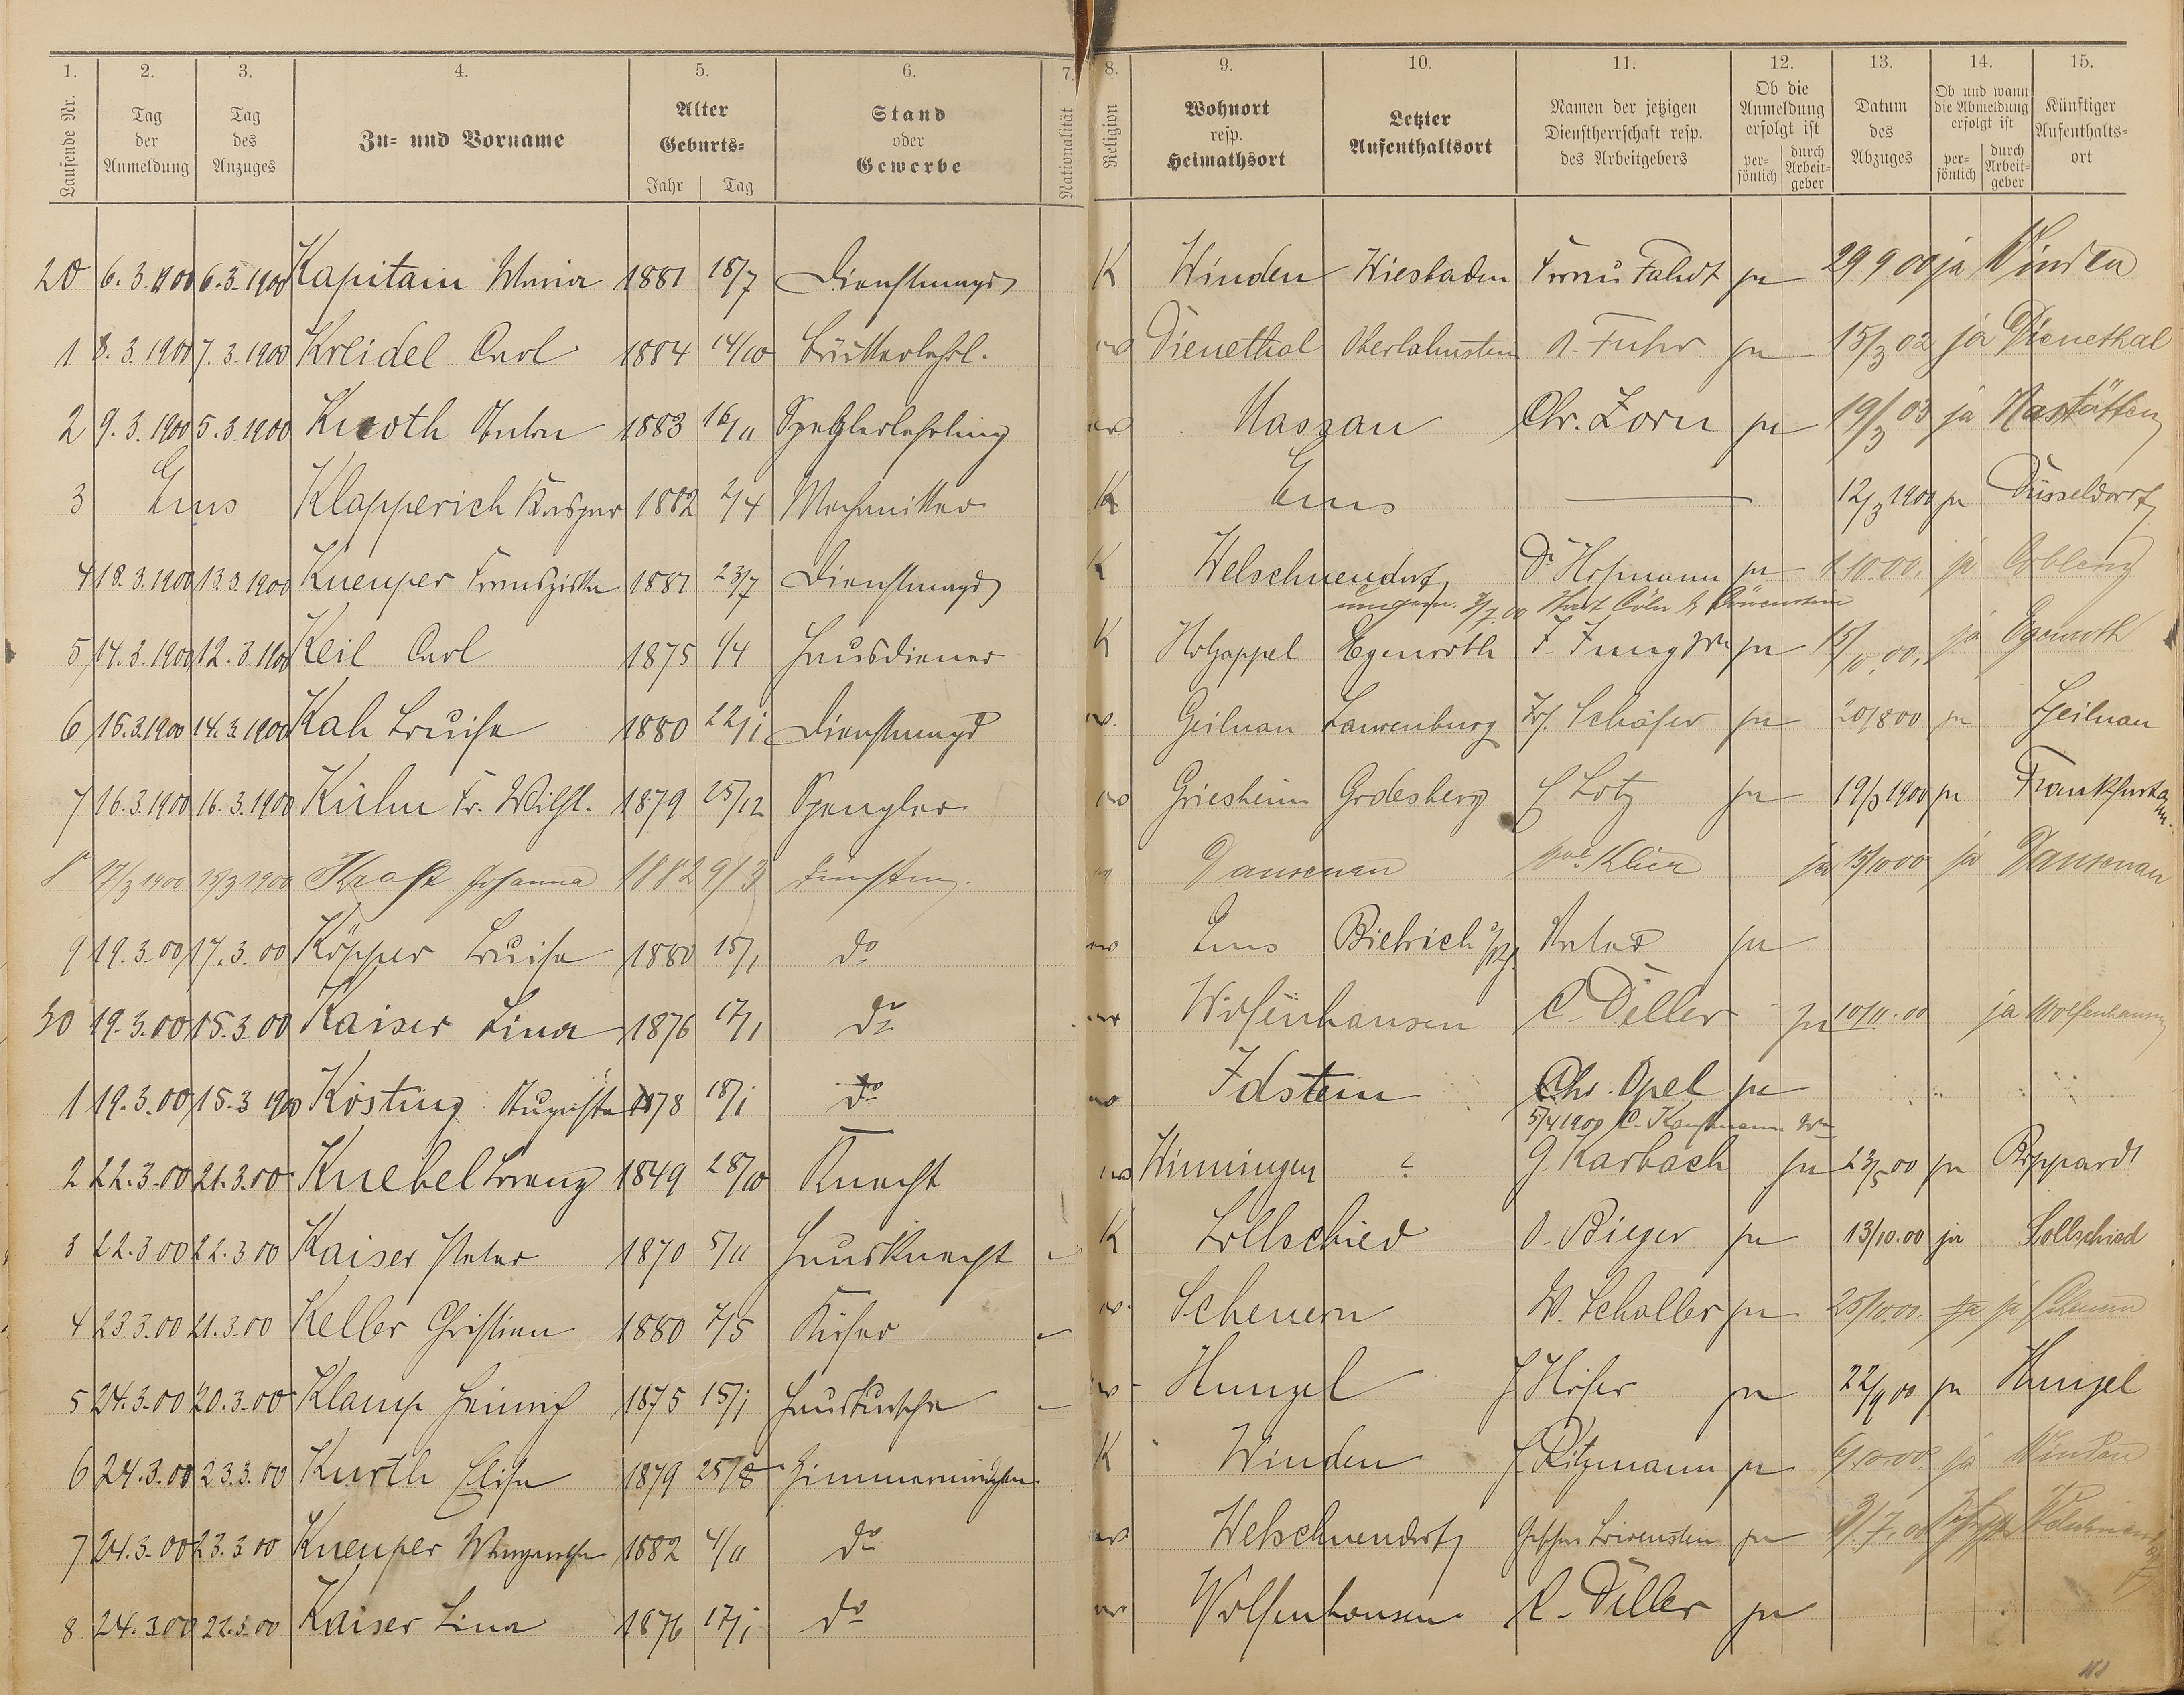 1. 2. 3. 4. 5. 6. 7. 8. 9. 10. 11. 12. 13. 14. 15.
Laufende Nr. Tag der Anmeldung Tag des Anzuges Zu- und Vorname Alter Geburts- Jahr Tag Stand oder Gewerbe Nationalität Religion Wohnort resp. Heimathsort Letzter Aufenthaltsort Namen der jetzigen Dienstherrschaft resp. des Arbeitgebers Ob die Anmeldung erfolgt ist persönlich durch Arbeitgeber Datum des Abzuges Ob und wann die Abmeldung erfolgt ist persönlich durch Arbeitgeber Künftiger Aufenthaltsort
20 6.3.1900 6.3.1900 Kapitain Maria 1881 18/7 Dienstmagd K Winden Wiesbaden Frau Fahdt ja 29 9 00 ja Winden
1 8.3.1900 7.3.1900 Kreidel Carl 1884 14/10 ev Dienethal Oberlahnstein A. Fuhr ja 15/3 02 ja Dienethal
2 9.3.1900 5.3.1900 Knoth 1883 16/11 Spenglerlehrling ev Nassau Chr. Zorn ja 19/3 03 ja Nastätten
3 Ems Klapperich Kaspar 1882 2/4 Mechaniker K Ems 12/3 1900 ja Düsseldorf
4 18.3.1900 13.3.1900 Kneuper Franziska 1881 23/7 Dienstmagd K Welschneudorf Dr Hofmann ja 1.10.00. ja Coblenz
5 14.3.1900 12.3.1900 Keil Carl 1875 1/4 Hausdiener K Holzappel Egenroth F. Jung Ww ja 15/10.00. ja Egenroth
6 15.3.1900 14.3.1900 Kah Louise 1880 22/1 Dienstmagd ev. Geilnau Laurenburg Schäfer ja 20/8 00 ja Geilnau
7 16.3.1900 16.3.1900 Kühn Fr. Wilh. 1879 25/12 Spengler ev Griesheim Godesberg Lotz ja 19/3 1900 ja Frankfurt a/M.
8 17/3 1900 15/3 1900 Kraft Johanna 1882 9/3 Dienstm. ev Dausenau Klier ja 15/10 00 ja Dausenau
9 19.3.00 17.3.00 Köpper Louise 1880 15/1 do ev Ems Biebrich ja
30 19.3.00 15.3.00 Kaiser Lina 1876 17/1 do ev Wolfenhausen C. Deller ja 10/11.00 ja Wolfenhausen
1 19.3.00 15.3 1900 Kösting Auguste 1878 18/1 do ev Idstein Chr. Opel ja
5/4 1900 C. Kauffmann Ww
2 22.3.00 21.3.00 Knebel Franz 1849 28/10 Knecht ev Winningen ? G. Karbach ja 23/5 00 ja Boppard
3 22.3 00 22.3 00 Kaiser Peter 1870 5/11 Hausknecht K Lollschied O. Rieger ja 13/10.00 ja Lollschied
4 23.3.00 21.3.00 Keller Christian 1880 7/5 Küfer ev. Scheuern W. Schaller ja 25/10.00. ja ja Scheuern
5 24.3.00 20.3.00 Klamp Heinrich 1875 15/1 Hausbursche ev Hunzel J Höfer ja 22/9 00 ja Hunzel
6 24.3.00 23.3.00 Kurth Elise 1879 25/8 Zimmermädchen K Winden J. Ritzmann ja ja Winden
7 24.3.00 23.3 00 Kneuper Margarethe 1882 4/11 do ev Welschneudorf Löwenstein ja
8 24.3.00 22.3.00 Kaiser Lina 1876 17/1 do ev Wolfenhausen C. Deller ja